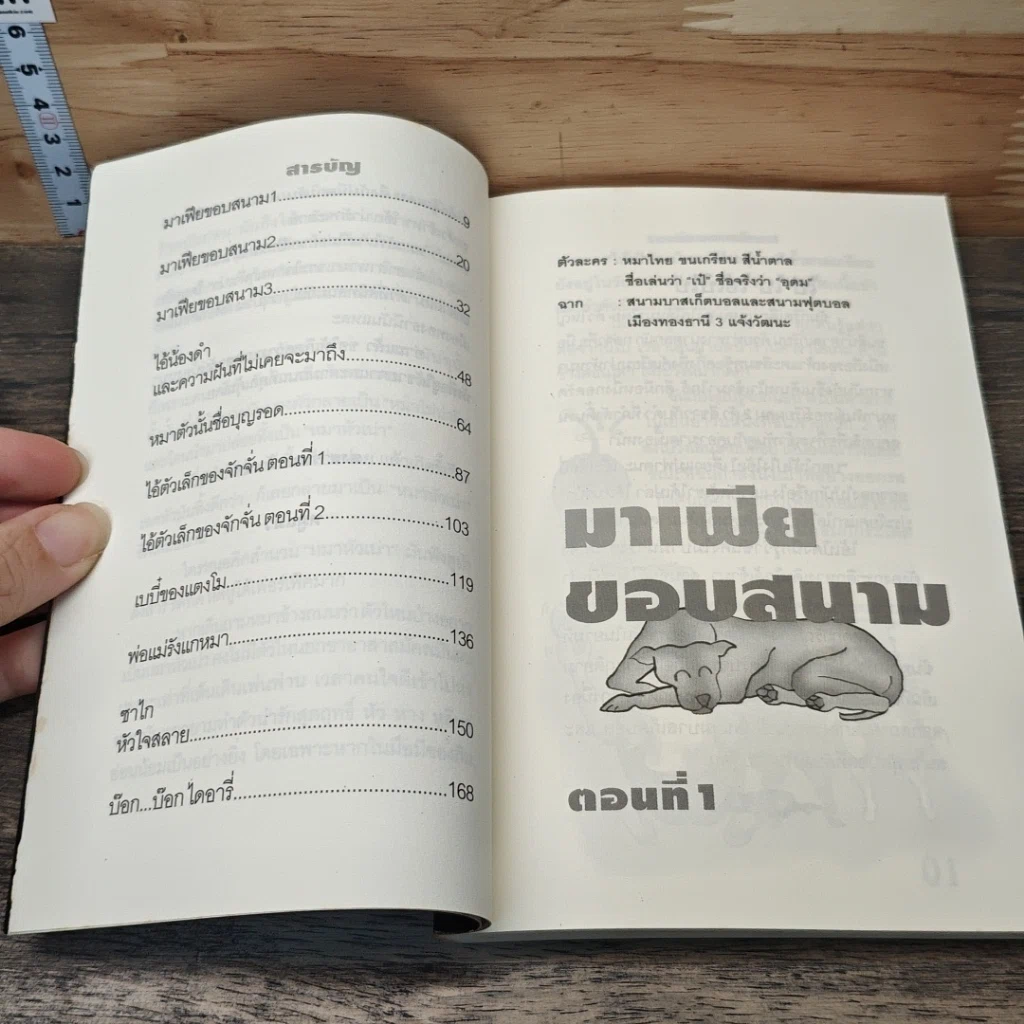 6
5
4
3
2
1
สารบัญ
มาเฟียขอบสนาม1..............................9
มาเฟียขอบสนาม2..............................20
มาเฟียขอบสนาม3..............................32
ไอ้น้องดำ
และความฝันที่ไม่เคยจะมาถึง..................48
หมาตัวนั้นชื่อบุญรอด..........................64
ไอ้ตัวเล็กของจักจั่น ตอนที่ 1....................87
ไอ้ตัวเล็กของจักจั่น ตอนที่ 2....................103
เบบี๋ของแตงโม..............................119
พ่อแม่รังแกหมา..............................136
ซาไก
หัวใจสลาย..............................150
บ๊อก...บ๊อก ไดอารี่..............................168
ตัวละคร : หมาไทย ขนเกรียน สีน้ำตาล
ชื่อเล่นว่า "เป๋" ชื่อจริงว่า "อุดม"
ฉาก : สนามบาสเก็ตบอลและสนามฟุตบอล
เมืองทองธานี 3 แจ้งวัฒนะ
มาเฟีย
ขอบสนาม
ตอนที่ 1